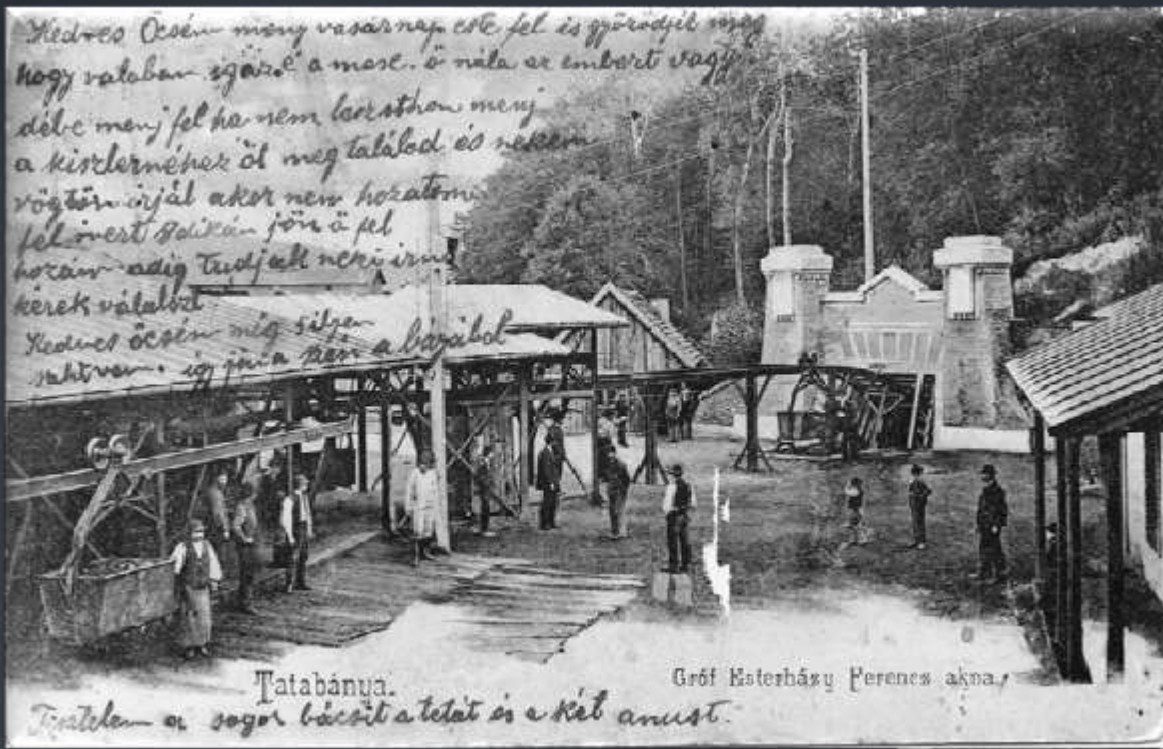 Kedves Öcsém meny vasárnap este fel is győződjél meg
hogy valaban igaz é a mese. ő nála az embert vagy
délbe menj fel ha nem lesz othon menj
a kiszlernéhez öt meg találod és nekem
vögtön irjál akor nem hozatom
fel mert 8dikán jön ő fel
hozám adig tudjak neki irni
kérek válalszt
Kedves öcsém még
igy jön a szén a bányából
Tatabánya.
Gróf Esterházy Ferencs akna.
Tisztelem a sogor bácsit a tetát és a két anust.